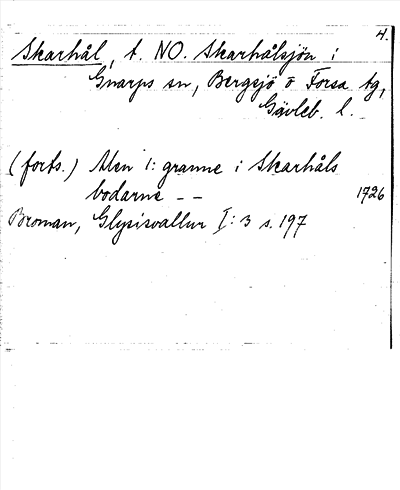 4.
Skarhål, t. NO. Skarhålsjön i
Gnarps sn, Bergsjö o Forsa tg,
Gävleb. l.
(forts.) Alen 1: granne i Skarhåls
bodarne – – 1726
Broman, Glysisvallur I: 3 s. 197